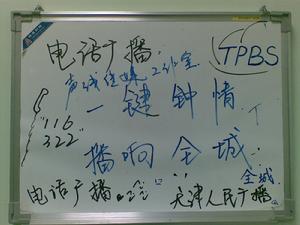 电话广播
TPBS
声线传媒工作室
一键钟情
"116
322"
播响全城
全城
电话广播
天津人民广播